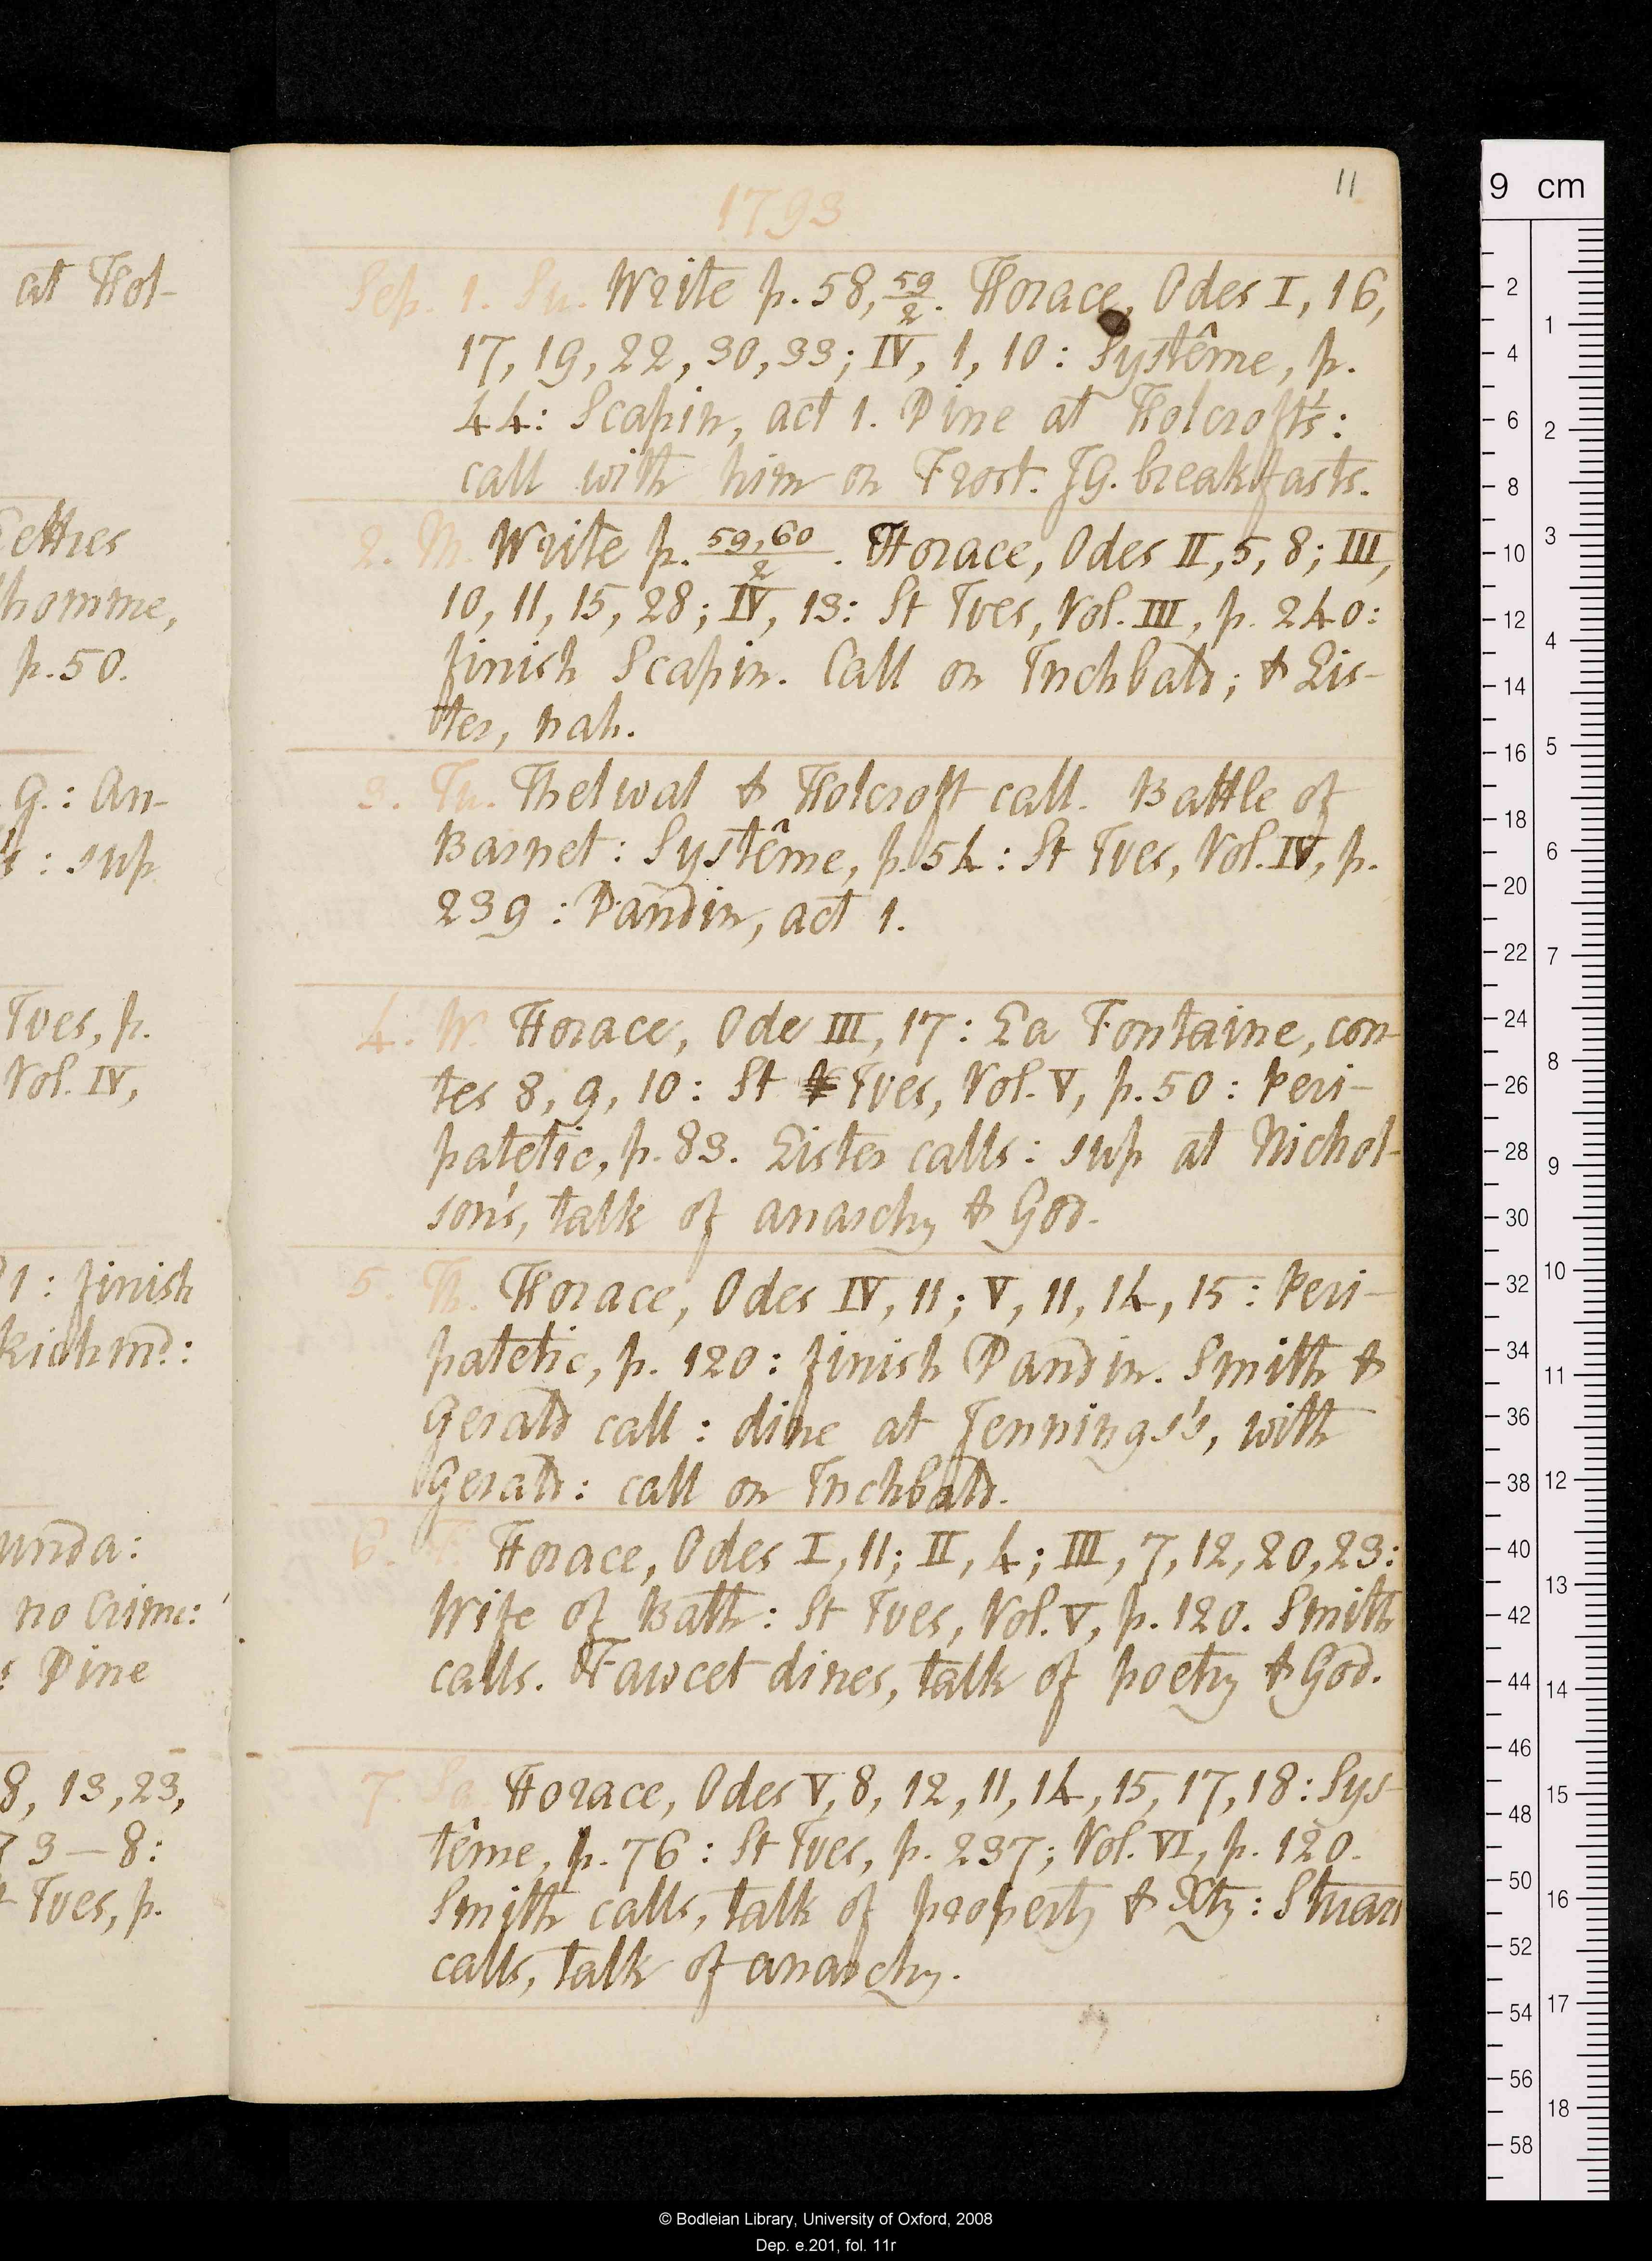 at Hol-
ethes
homme,
p. 50.
G.: An-
: sup
Ives, p.
Vol. IV,
1: finish
Richmd:
unda:
no Crime:
Dine
8, 13, 23,
3 — 8:
Ives, p.
11
1793
Sep. 1. Su. Write p. 58, 59/2. Horace, Odes I, 16,
17, 19, 22, 30, 33; IV, 1, 10: Systême, p.
44: Scapin, act 1. Dine at Holcroft's:
call with him on Frost. JG. breakfasts.
2. M. Write p. 59,60/2. Horace, Odes II, 5, 8; III,
10, 11, 15, 28; IV, 13: St Ives, Vol. III, p. 240:
finish Scapin. Call on Inchbald; & Lis-
ter, nah.
3. Tu. Thelwal & Holcroft call. Battle of
Barnet: Systême, p. 54: St Ives, Vol. IV, p.
239: Dandin, act 1.
4. W. Horace, Ode III, 17: La Fontaine, con-
tes 8, 9, 10: St Ives, Vol. V, p. 50: Peri-
patetic, p. 83. Lister calls: sup at Nichol-
son's, talk of anarchy & God.
5. Th. Horace, Odes IV, 11; V, 11, 14, 15: Peri-
patetic, p. 120: finish Dandin. Smith &
Gerald call: dine at Jennings's, with
Gerald: call on Inchbald.
6. F. Horace, Odes I, 11; II, 4; III, 7, 12, 20, 23:
Wife of Bath: St Ives, Vol. V, p. 120. Smith
calls. Fawcet dines, talk of poetry & God.
7. Sa. Horace, Odes V, 8, 12, 11, 14, 15, 17, 18: Sys-
tême, p. 76: St Ives, p. 237; Vol. VI, p. 120.
Smith calls, talk of property & Xty: Stuart
calls, talk of anarchy.
9 cm
2
4
6
8
10
12
14
16
18
20
22
24
26
28
30
32
34
36
38
40
42
44
46
48
50
52
54
56
58
1
2
3
4
5
6
7
8
9
10
11
12
13
14
15
16
17
18
© Bodleian Library, University of Oxford, 2008
Dep. e.201, fol. 11r